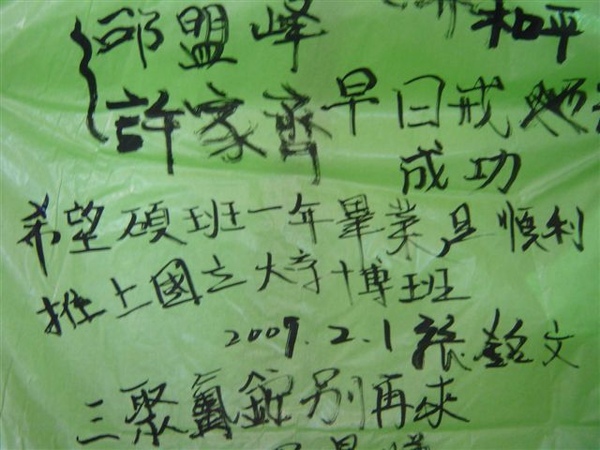 邱盟峰 和平
許家齊 早日戒
成功
希望碩班一年畢業且順利
推上國立大專博班
2009.2.1 張銘文
三聚氰銨別再來